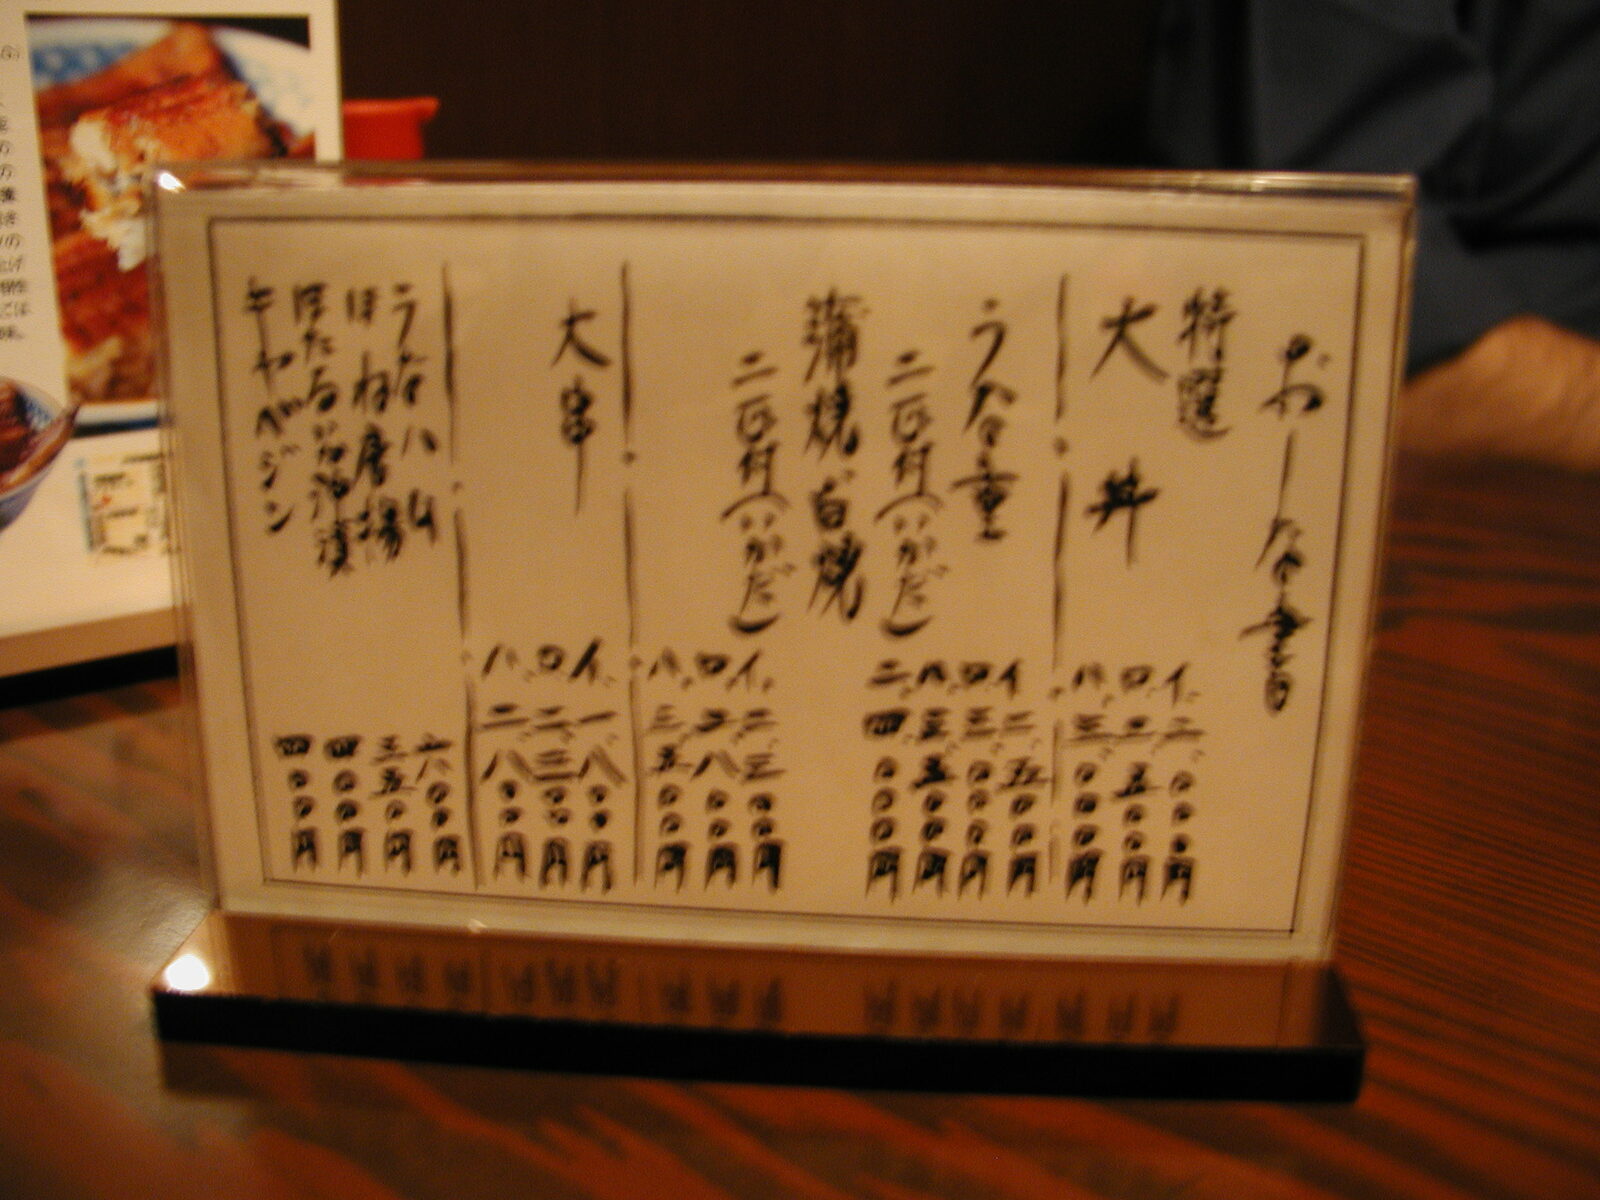 おしながき
特選
大丼
イ、二、〇〇〇円
ロ、二、五〇〇円
ハ、三、〇〇〇円
うな重
イ、二、五〇〇円
ロ、三、〇〇〇円
ハ、三、五〇〇円
二、四、〇〇〇円
二匹付(いかだ)
蒲焼 白焼
イ、二、三〇〇円
ロ、二、八〇〇円
ハ、三、五〇〇円
二匹付(いかだ)
大串
イ、一、八〇〇円
ロ、二、三〇〇円
ハ、二、八〇〇円
うなハム
八〇〇円
ほね唐揚
三五〇円
ほたるいか沖漬
四〇〇円
キャベジン
四〇〇円